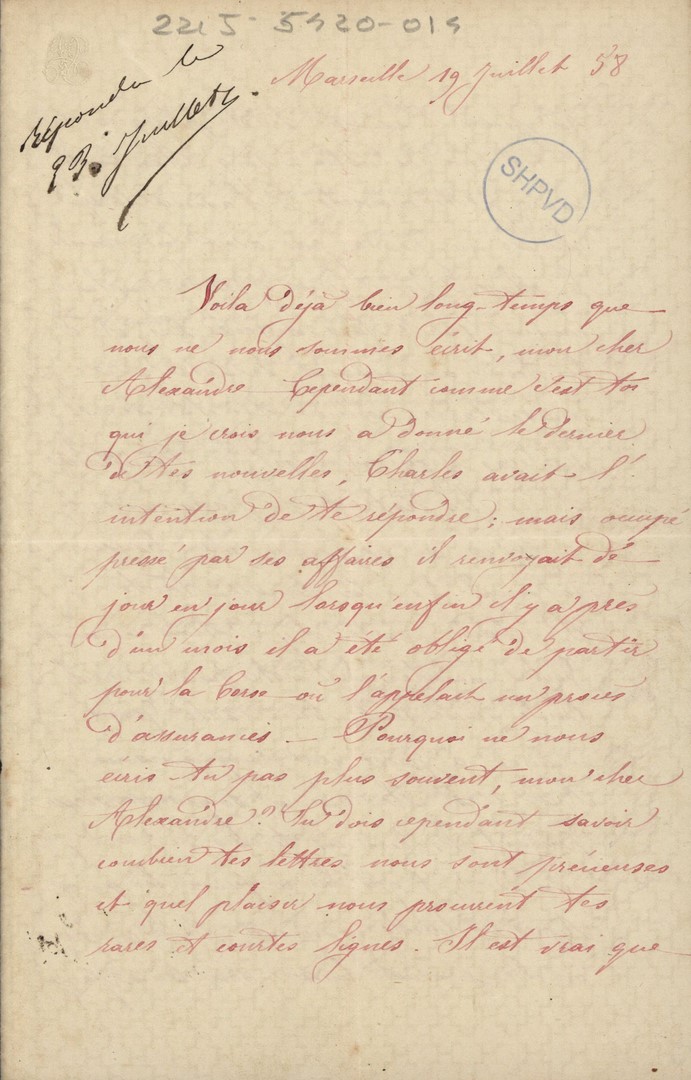 2215-5420-014
Réponda le
23. Juillet.
Marseille 19 Juillet 58
SHPVD
Voila déjà bien long-temps que
nous ne nous sommes écrit, mon cher
Alexandre Cependant comme c'est toi
qui je crois nous a donné le dernier
de tes nouvelles, Charles avait l'
intention de te répondre; mais occupé
pressé par ses affaires il renvoyait de
jour en jour lorsqu'enfin il y a près
d'un mois il a été obligé de partir
pour la Corse où l'appelait un procès
d'assurances — Pourquoi ne nous
écris tu pas plus souvent, mon cher
Alexandre? Tu dois cependant savoir
combien tes lettres nous sont précieuses
et quel plaisir nous procurent tes
rares et courtes lignes. Il est vrai que